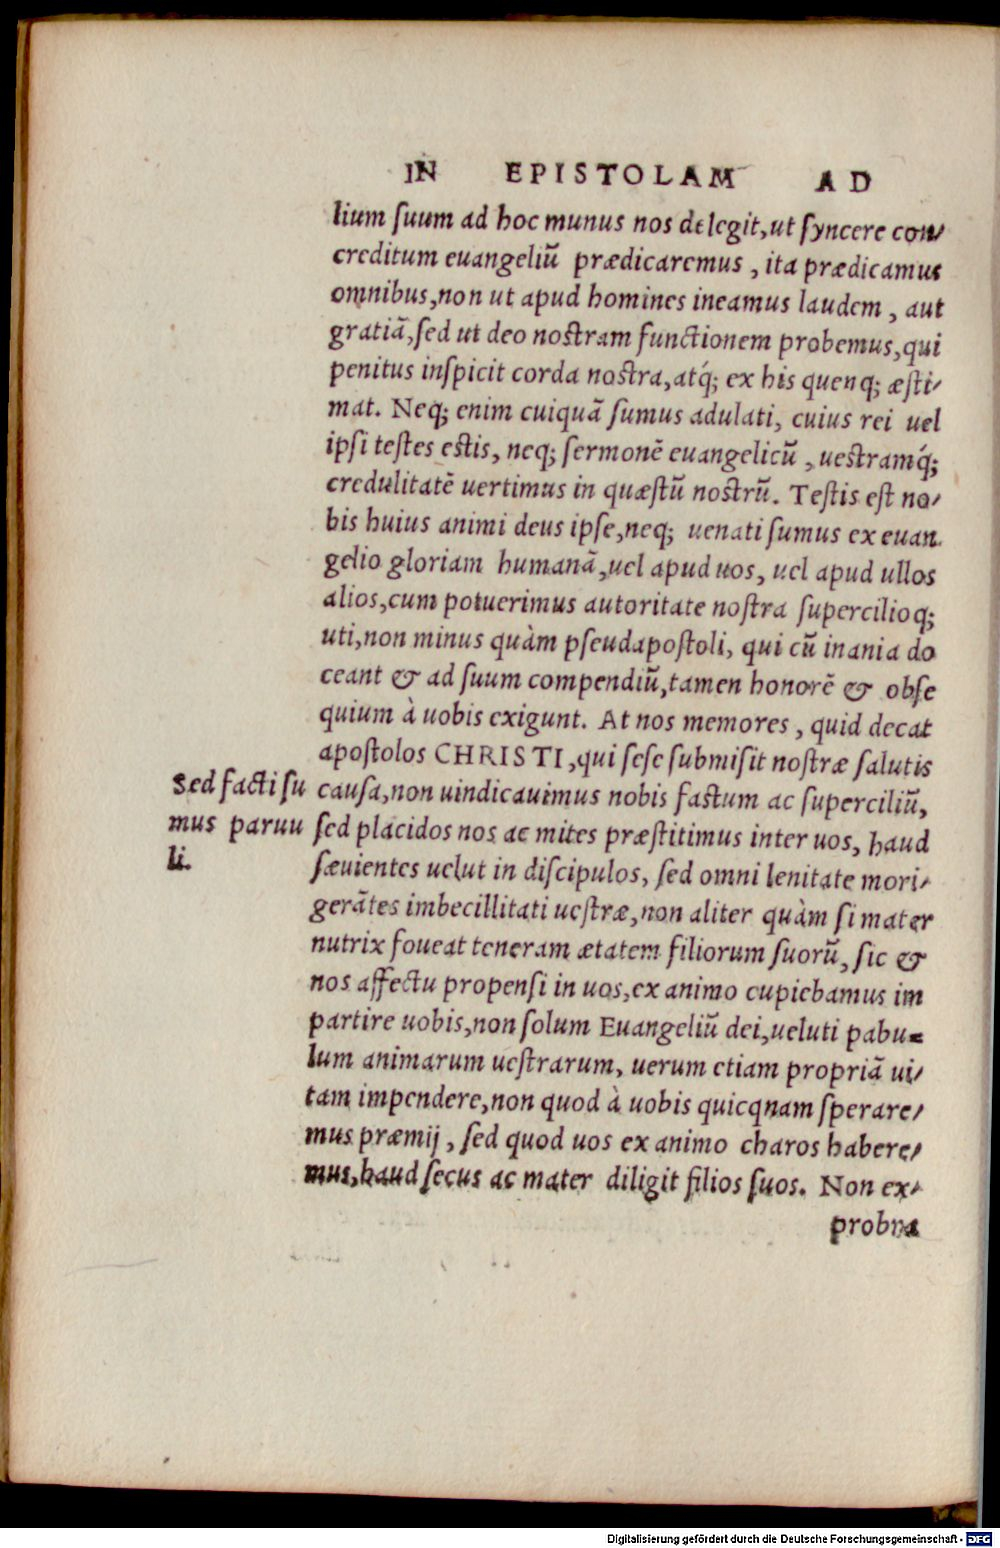 IN EPISTOLAM AD
lium ſuum ad hoc munus nos delegit, ut ſyncere con-
creditum euangeliũ prædicaremus, ita prædicamus
omnibus, non ut apud homines ineamus laudem, aut
gratiã, ſed ut deo nostram functionem probemus, qui
penitus inſpicit corda nostra, atq́; ex his quenq; æſti-
mat. Neq; enim cuiquã ſumus adulati, cuius rei uel
ipſi teſtes estis, neq; ſermonẽ euangelicũ, uestramq́;
credulitatẽ uertimus in quæſtũ noſtrũ. Teſtis eſt no-
bis huius animi deus ipſe, neq; uenati ſumus ex euan
gelio gloriam humanã, uel apud uos, uel apud ullos
alios, cum potuerimus autoritate noſtra ſupercilioq;
uti, non minus quàm pſeudapoſtoli, qui cũ inania do
ceant & ad ſuum compendiũ, tamen honorẽ & obſe
quium à uobis exigunt. At nos memores, quid decat
apoſtolos CHRISTI, qui ſeſe ſubmiſit noſtræ ſalutis
Sed facti ſu
mus paruu
li.
cauſa, non uindicauimus nobis faſtum ac ſuperciliũ,
ſed placidos nos ac mites præſtitimus inter uos, haud
ſæuientes uelut in diſcipulos, ſed omni lenitate mori-
gerãtes imbecillitati ueſtræ, non aliter quàm ſi mater
nutrix foueat teneram ætatem filiorum ſuorũ, ſic &
nos affectu propenſi in uos, ex animo cupiebamus im
partire uobis, non ſolum Euangeliũ dei, ueluti pabu-
lum animarum ueſtrarum, uerum etiam propriã ui-
tam impendere, non quod à uobis quicqnam ſperare-
mus præmij, ſed quod uos ex animo charos habere-
mus, haud ſecus ac mater diligit filios ſuos. Non ex-
probra
Digitalisierung gefördert durch die Deutsche Forschungsgemeinschaft - DFG